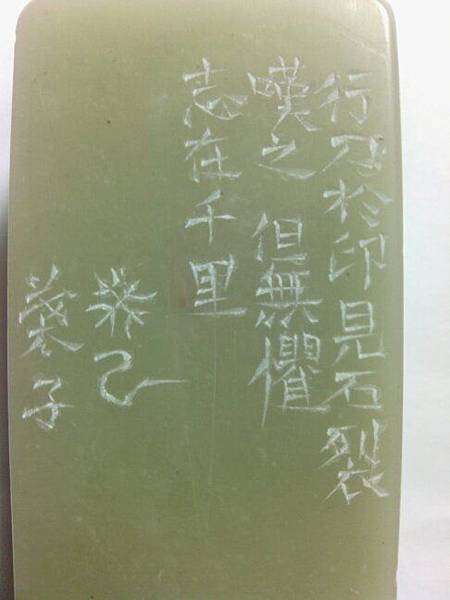 行刀於印見石裂
嘆之 但無懼
志在千里
癸己
葵子